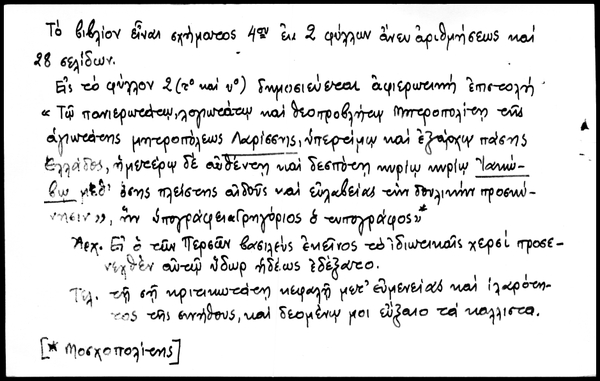 Τὸ βιβλίον εἶναι σχήματος 4ον ἐκ 2 φύλλων ἄνευ ἀριθμήσεως καὶ
28 σελίδων.
Εἰς τὸ φύλλον 2 (τ° καὶ υ°) δημοσιεύεται ἀφιερωτικὴ ἐπιστολή
« Τῷ πανιερωτάτῳ, λογιωτάτῳ καὶ θεοπροβλήτῳ Μητροπολίτῃ τῆς
ἁγιωτάτης μητροπόλεως Λαρίσσης, ὑπερτίμῳ καὶ ἐξάρχῳ πάσης
Ἑλλάδος, ἡμετέρῳ δὲ αὐθέντῃ καὶ δεσπότῃ κυρίῳ κυρίῳ Ἰακώ-
βῳ μεθ' ὅσης πλείστης αἰδοῦς καὶ εὐλαβείας τὴν δουλικὴν προσκύ-
νησιν», ἣν ὑπογράφει «Γρηγόριος ὁ τυπογράφος»*
Ἀρχ. Εἰ ὁ τῶν Περσῶν βασιλεὺς ἐκεῖνος τὸ ἰδιωτικαῖς χερσὶ προσε-
νεχθὲν αὐτῷ ὕδωρ ἡδέως ἐδέξατο.
Τελ. τῇ σῇ κριτικωτάτῃ κεφαλῇ μετ' εὐμενείας καὶ ἱλαρότη-
τος τῆς συνήθους, καὶ δεομένῳ μοι εὔξαιο τὰ κάλλιστα.
[* Μοσχοπολίτης]